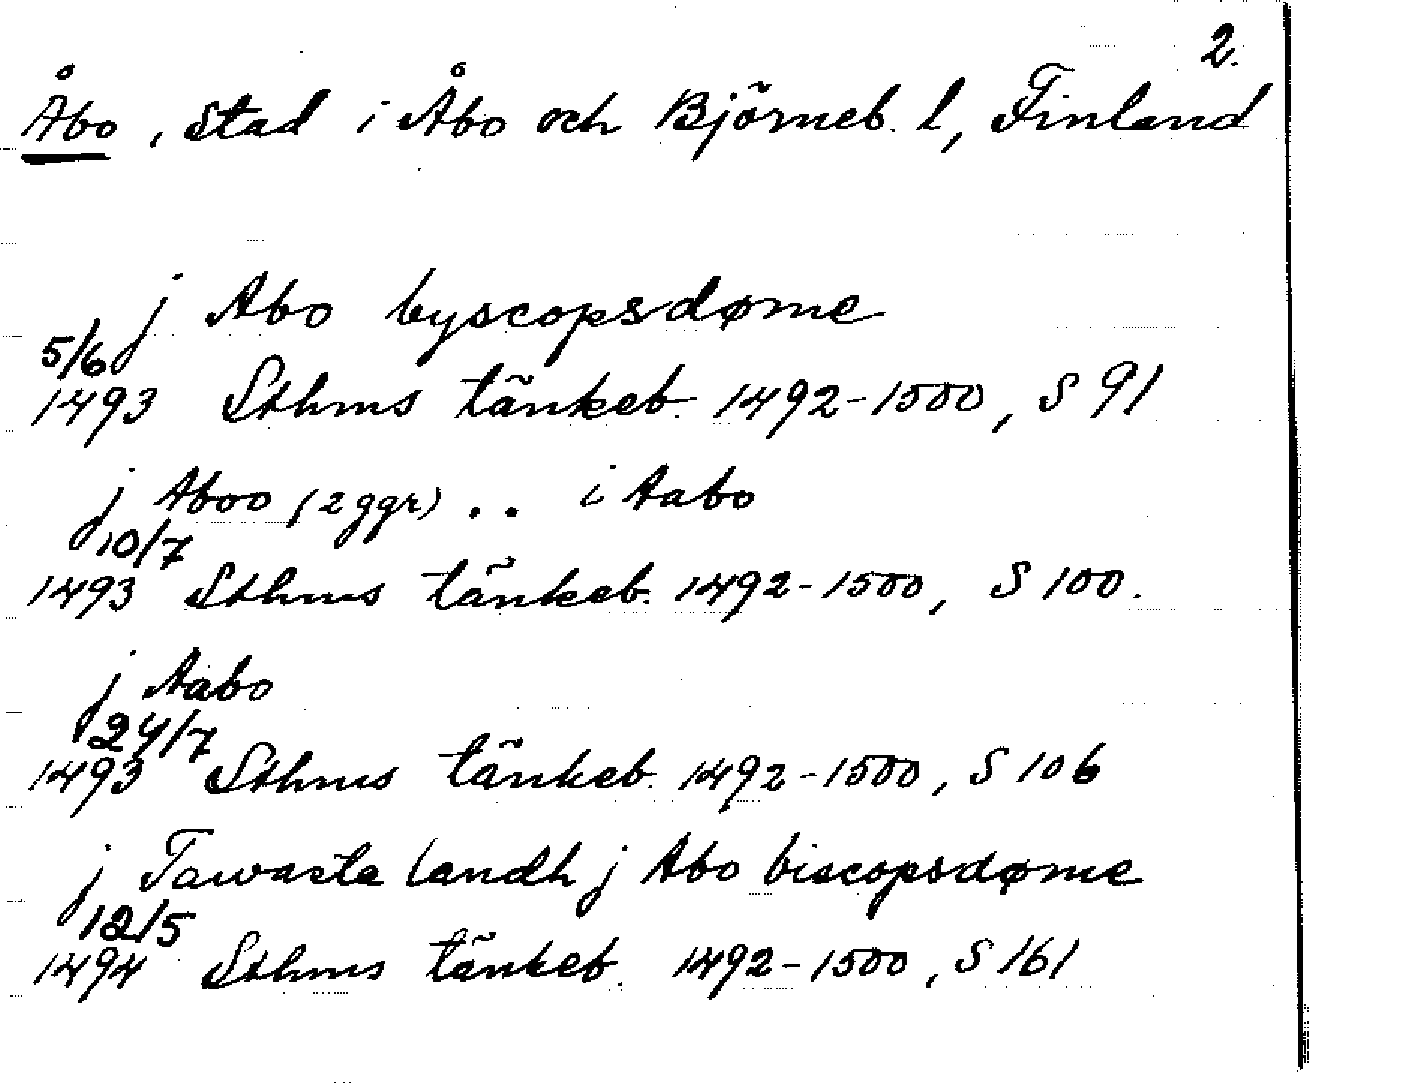 2.
Åbo, stad i Åbo och Björneb. l, Finland
j Abo byscopsdøme
5/6
1493 Sthms tänkeb. 1492-1500, S 91
j Aboo (2 ggr) .. i Aabo
10/7
1493 Sthms tänkeb. 1492-1500, S 100.
j Aabo
24/7
1493 Sthms tänkeb. 1492-1500, S 106
j Tawasta landh j Abo biscopsdøme
12/5
1494 Sthms tänkeb. 1492-1500, S 161